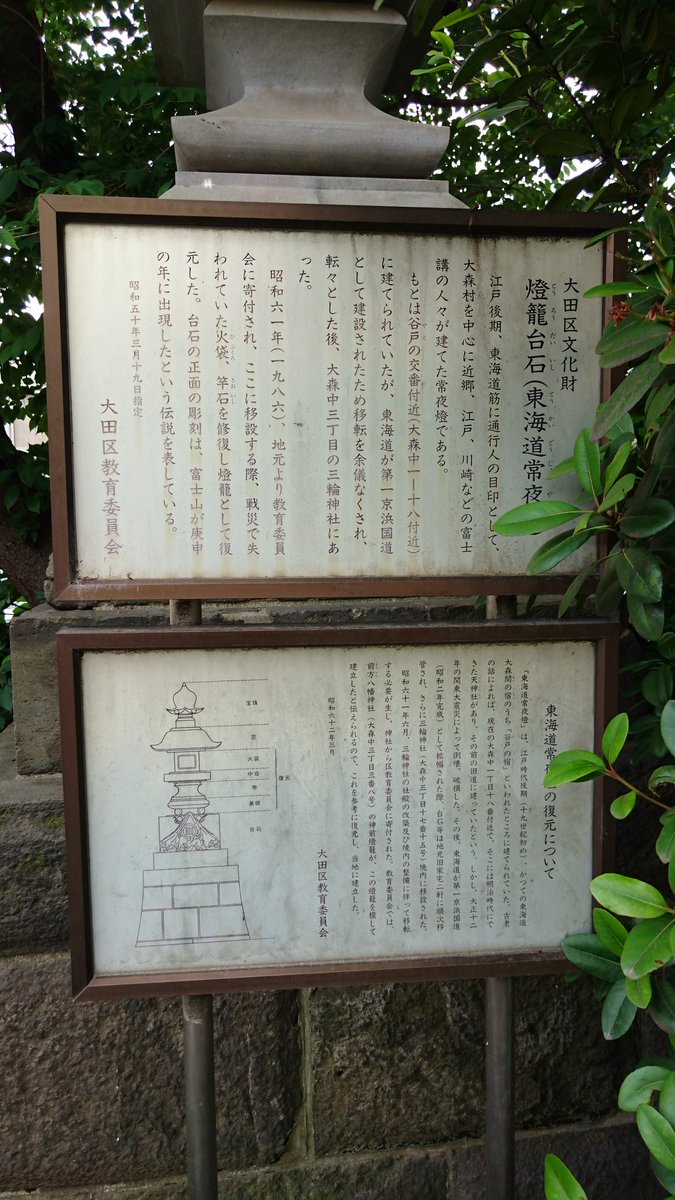 大田区文化財
燈籠台石(東海道常夜
とうろうだいいし とうかいどうじょうや
江戸後期、東海道筋に通行人の目印として、
大森村を中心に近郷、江戸、川崎などの富士
講の人々が建てた常夜燈である。
もとは谷戸の交番付近(大森中一―十八付近)
やと
に建てられていたが、東海道が第一京浜国道
として建設されたため移転を余儀なくされ、
転々とした後、大森中三丁目の三輪神社にあ
った。
昭和六一年(一九八六)、地元より教育委員
会に寄付され、ここに移設する際、戦災で失
われていた火袋、竿石を修復し燈籠として復
ひぶくろ さおいし
元した。台石の正面の彫刻は、富士山が庚申
の年に出現したという伝説を表している。
昭和五十年三月十九日指定
大田区教育委員会
東海道常夜 の復元について
「東海道常夜燈」は、江戸時代後期(十九世紀初め)、かつての東海道
大森間の宿のうち「谷戸の宿」といわれたところに建てられていた。古老
の話によれば、現在の大森中一丁目十八番付近で、そこには明治時代にで
きた天神社があり、その前の旧道に建っていたという。しかし、大正十二
年の関東大震災によって倒壊、破損した。その後、東海道が第一京浜国道
(昭和二年完成)として拡幅された際、台石等は地元旧家宅二軒に順次移
管され、さらに三輪神社(大森中三丁目十七番十五号)境内に移設された。
昭和六十一年六月、三輪神社の社殿の改築及び境内の整備に伴って移転
する必要が生じ、神社から区教育委員会に寄付された。教育委員会では、
前方八幡神社(大森中三丁目三番八号)の神前燈籠が、この燈籠を模して
建立したと伝えられるので、これを参考に復元し、当地に建立した。
昭和六十二年三月
大田区教育委員会
宝珠
笠
火袋
中台
竿
基礎
復元
台石